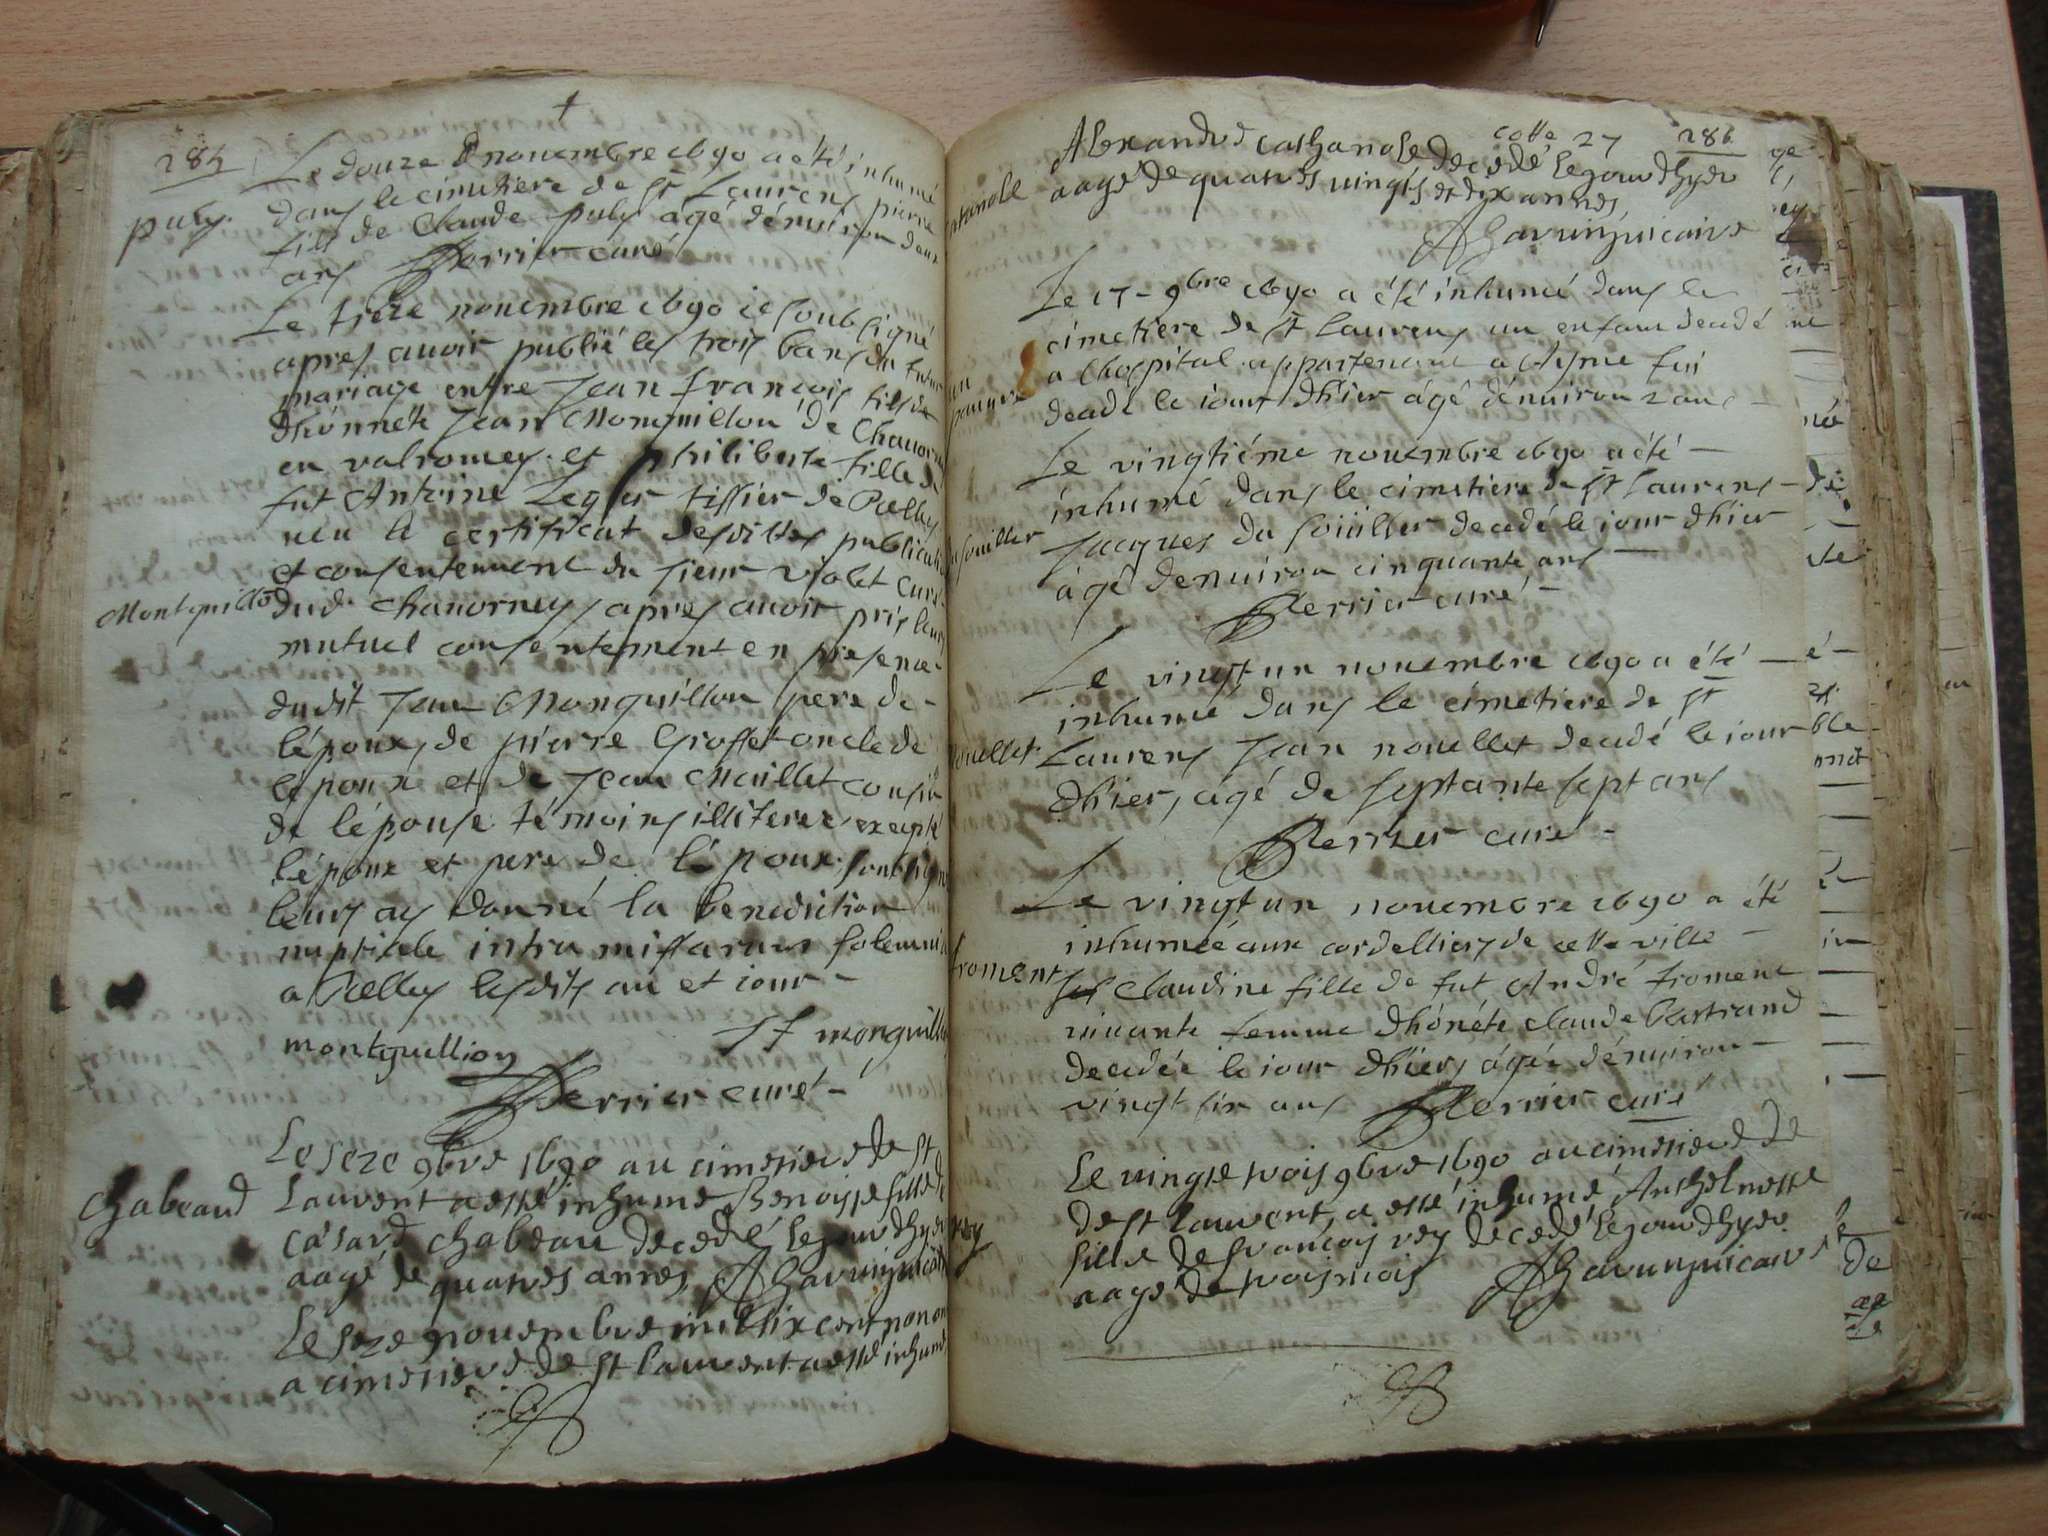 285
Le douze novembre 1690 a été inhumé
dans le cimetiere de St Laurens pierre
puly.
fils de Claude puly âgé dénuiron deux
ans Perrier curé
Le treize nouembre 1690 ie soubsigné
apres auoir publié les trois bans du futur
mariage entre Jean françois fils de
dhonnéte Jean Monguillon de Chauornay
en valromey et philiberte fille de
fut Antoine Leger tissier de Belley
ueu le certificat desdittes publicati
et consentement du sieur violet Curé
Montguillon
dud. Chauorney, apres auoir pris leurs
mutuel consentement en presence
dudit Jean Monguillon pere de
lépoux, de pierre Grosset oncle de
lépoux et de Jean Maillet cousin
de lépouse témoins illiterez excepté
lépoux et pere de lépoux soubsignés
leurs ay donné la benediction
nuptiale intra missarum solemnia
a Belley lesdits an et iour
montguillion JF monguillon
Perrier curé
Le seze 9bre 1690 au cimetiere de St
Chabeaud
Laurent a esté inhume Benoiste fille de
Cásard Chabeau decedé le jour dhyer
aagé de quatres annes Ghavunzuicaire
Le seze nouembre mil six cent nonan
a cimetiere de St Laurent a esté inhumé
cotte 27 286
Alexandre Cathanole decedé le jour dhyer
aagé de quatres uingts et dix annes
Ghavunzuicaire
Le 17 - 9bre 1690 a été inhumé dans le
cimetiere de St Laurens un enfant decedé
a lhospital appartenant a Ayme fui
un pauure
decedé le iour dhier âgé dénuiron 2 ans
Le vingtiéme nouembre 1690 a été
inhumé dans le cimetiere de St Laurens
du Soüiller
Jacques du Soüiller decedé le iour dhier
âgé denuiron cinquante ans
Perrier curé
Le vingt un nouembre 1690 a été
inhumé dans le cimetiere de St
nouellet
Laurens Jean nouellet decedé le iour
dhier, âgé de septante sept ans
Perrier curé
Le vingt un nouembre 1690 a été
inhumée aux cordelliers de cette ville
froment
Claudine fille de fut André froment
uiuante femme dhónéte Claude Bertrand
decedée le iour dhier, âgée dénuiron
vingt six ans Perrier curé
Le vingte trois 9bre 1690 au cimetiere de
de St Laurent, a esté inhumé Anthelmette
rey
fille de françois rey decedé le jour dhyer
aagé de trois mois Ghavunzuicaire